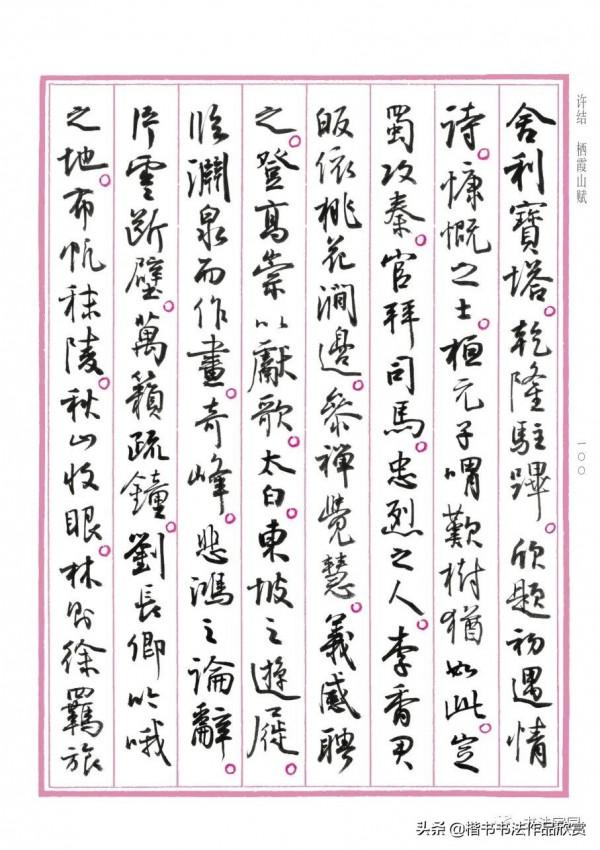 许结 栖霞山赋
一〇〇
舍利寶塔。乾隆駐蹕。欣題初遇情
詩。慷慨之士。桓元子喟歎樹猶如此。定
蜀攻秦。官拜司馬。忠烈之人。李香君
皈依桃花澗邊。參禪覺慧。義感聘
之。登高崇以獻歌。太白。東坡之遊屐。
臨澗泉而作畫。奇峰。悲鴻之論辭。
片雲斷壁。萬籟疏鐘。劉長卿吟哦
之地。布帆秣陵。秋山收眼。林則徐羈旅
头条 @楷书书法作品欣赏